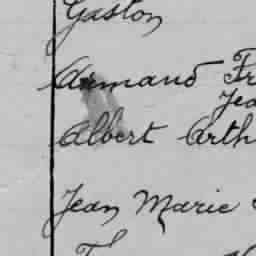 Gaston
Armand Fr
Jea
Albert Arth
Jean Marie